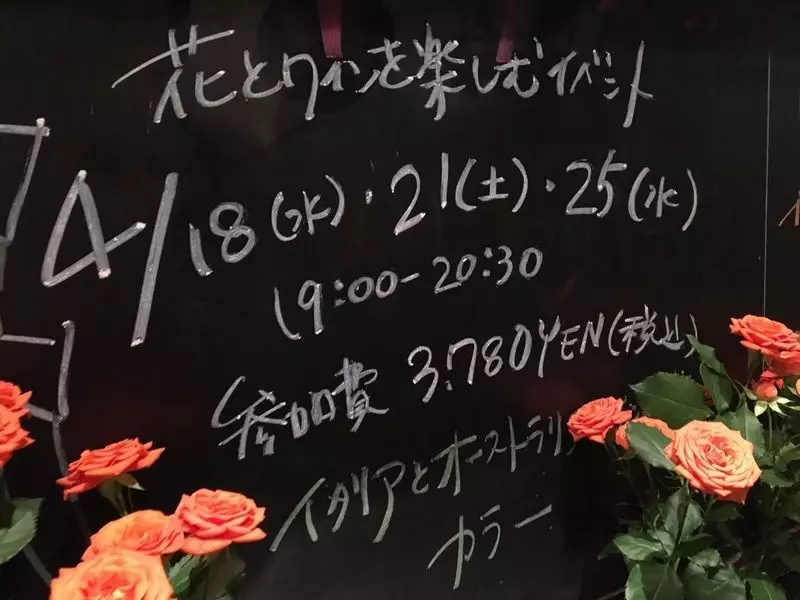 花とワインを楽しむイベント
4/18(水)・21(土)・25(水)
19:00-20:30
参加費 3.780YEN(税込)
イタリアとオーストラリ
カラー